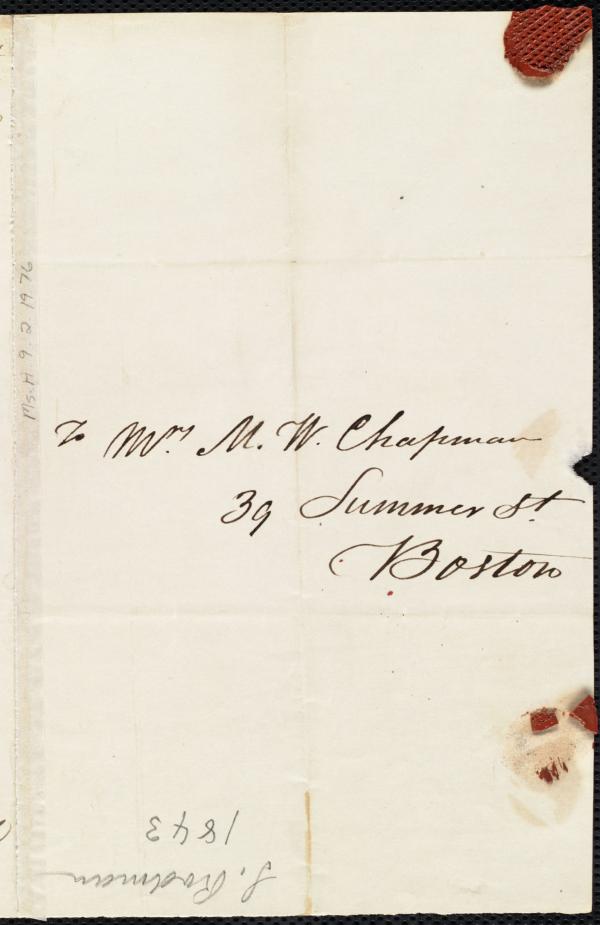 To Mrs M. W. Chapman
39 Summer St
Boston
Ms. A. 9. 2. 19. 76
S. Rodman
1843